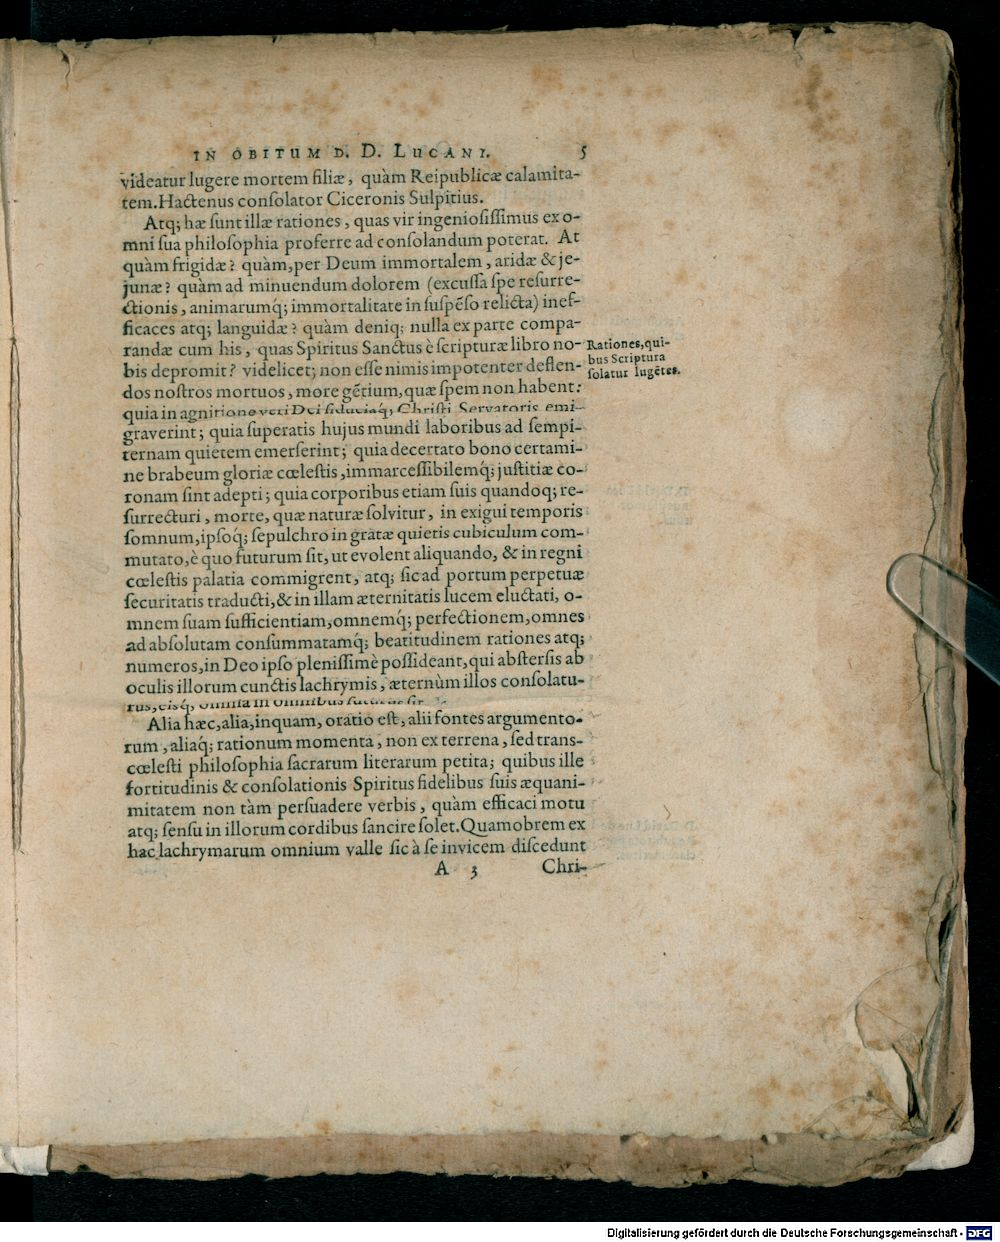 IN OBITUM D. D. LUCANI. 5
videatur lugere mortem filiæ, quàm Reipublicæ calamita-
tem. Hactenus consolator Ciceronis Sulpitius.
Atq; hæ sunt illæ rationes, quas vir ingeniosissimus ex o-
mni sua philosophia proferre ad consolandum poterat. At
quàm frigidæ? quàm, per Deum immortalem, aridæ & je-
junæ? quàm ad minuendum dolorem (excussa spe resurre-
ctionis, animarumq́; immortalitate in suspẽso relicta) inef-
ficaces atq; languidæ? quàm deniq; nulla ex parte compa-
randæ cum his, quas Spiritus Sanctus è scripturæ libro no-
bis depromit? videlicet; non esse nimis impotenter deflen-
dos nostros mortuos, more gẽtium, quæ spem non habent:
quia in agnitione veri Dei fiduciaq́; Christi Servatoris emi-
graverint; quia superatis hujus mundi laboribus ad sempi-
ternam quietem emerserint; quia decertato bono certami-
ne brabeum gloriæ cœlestis, immarcessibilemq́; justitiæ co-
ronam sint adepti; quia corporibus etiam suis quandoq; re-
surrecturi, morte, quæ naturæ solvitur, in exigui temporis
somnum, ipsoq́; sepulchro in gratæ quietis cubiculum com-
mutato, è quo futurum sit, ut evolent aliquando, & in regni
cœlestis palatia commigrent, atq; sic ad portum perpetuæ
securitatis traducti, & in illam æternitatis lucem eluctati, o-
mnem suam sufficientiam, omnemq́; perfectionem, omnes
ad absolutam consummatamq́; beatitudinem rationes atq;
numeros, in Deo ipso plenissimè possideant, qui abstersis ab
oculis illorum cunctis lachrymis, æternùm illos consolatu-
rus, eisq́; omnia in omnibus futurus sit.
Alia hæc, alia, inquam, oratio est, alii fontes argumento-
rum, aliaq́; rationum momenta, non ex terrena, sed trans-
cœlesti philosophia sacrarum literarum petita; quibus ille
fortitudinis & consolationis Spiritus fidelibus suis æquani-
mitatem non tàm persuadere verbis, quàm efficaci motu
atq; sensu in illorum cordibus sancire solet. Quamobrem ex
hac lachrymarum omnium valle sic à se invicem discedunt
A 3 Chri-
Rationes, qui-
bus Scriptura
solatur lugẽtes.
Digitalisierung gefördert durch die Deutsche Forschungsgemeinschaft - DFG